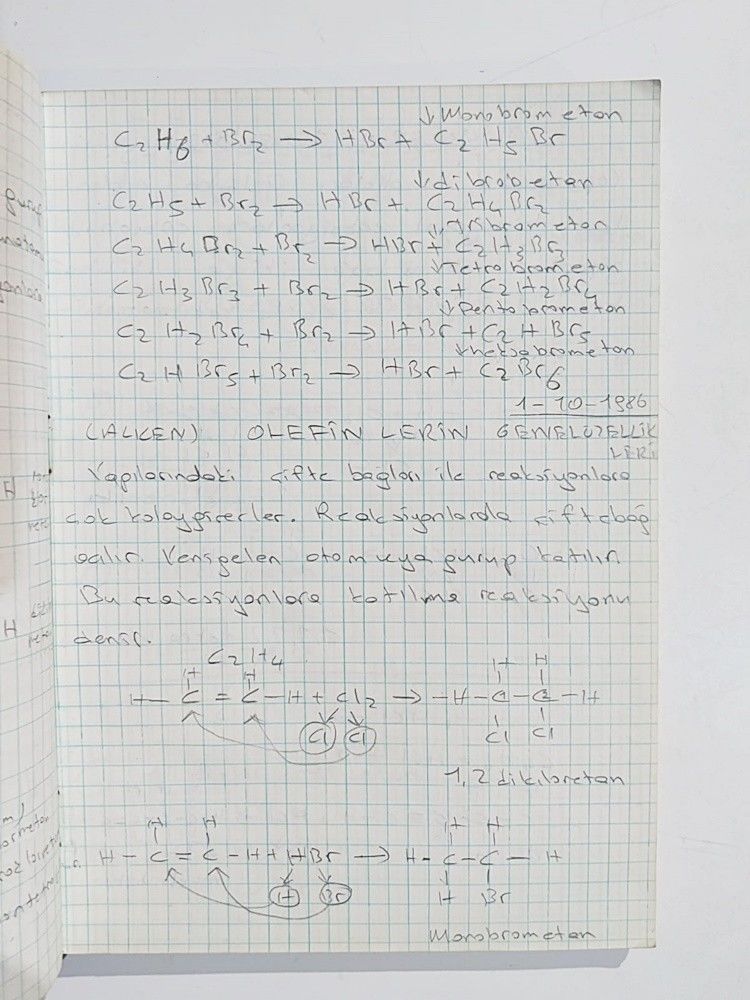 ↓ Monobrometan
C₂H₆ + Br₂ → HBr + C₂H₅Br
↓ dibrobetan
C₂H₅ + Br₂ → HBr + C₂H₄Br₂
↓ Tribrometan
C₂H₄Br₂ + Br₂ → HBr + C₂H₃Br₃
↓ Tetrabrometan
C₂H₃Br₃ + Br₂ → HBr + C₂H₂Br₄
↓ Pentabrometan
C₂H₂Br₄ + Br₂ → HBr + C₂HBr₅
↓ heksabrometan
C₂HBr₅ + Br₂ → HBr + C₂Br₆
1-10-1986
(ALKEN) OLEFİNLERİN GENELÖZELLİK
LERİ
Yapılarındaki çifte bağları ile reaksiyonlara
çok kolaygirerler. Reaksiyonlarda çiftebağ
açılır. Yenigelen atom veya gurup katılır.
Bu reaksiyonlara katılma reaksiyonu
denir.
C₂H₄
H H H H
H — C = C — H + Cl₂ → — H — C — C — H
Cl Cl Cl Cl
1,2 dikiloretan
H H H H
H — C = C — H + HBr → H — C — C — H
H Br H Br
Monobrometan